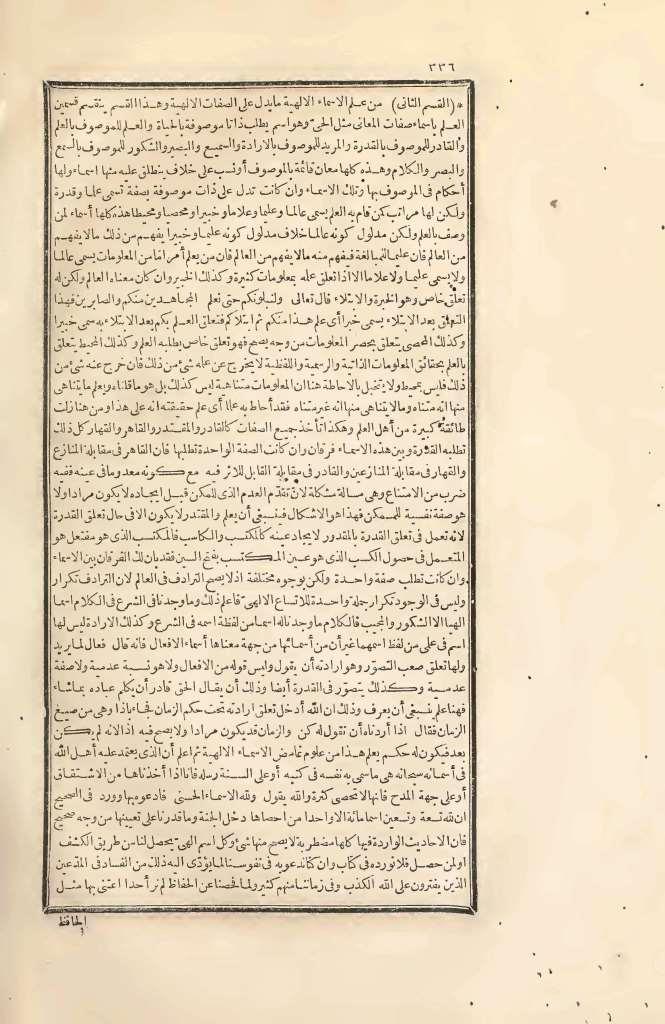 ٣٣٦
* (القسم الثانى) من علم الاسماء الالهية مايدل على الصفات الالهية وهذا القسم ينقسم قسمين
العلم باسماء صفات المعانى مثل الحىّ وهو اسم يطلب ذاتا موصوفة بالحياة والعلم للموصوف بالعلم
والقادر للموصوف بالقدرة والمريد للموصوف بالارادة والسميع والبصير والشكور للموصوف بالسمع
والبصر والكلام وهذه كلها معان قائمة بالموصوف أونسب على خلاف ينطلق عليه منها اسماء ولها
أحكام فى الموصوف بها وتلك الاسماء وان كانت تدل على ذات موصوفة بصفة تسمى علما وقدرة
ولكن لها مراتب كمن قام به العلم يسمى عالما وعليما وعلاما وخبيرا ومحصيا ومحيطا هذه كلها أسماء لمن
وصف بالعلم ولكن مدلول كونه عالما خلاف مدلول كونه عليما وخبيرا يفهم من ذلك مالا يفهم
من العالم فان عليما للمبالغة فيفهم منه مالا يفهم من العالم فان من يعلم أمرا ما من المعلومات يسمى عالما
ولا يسمى عليما ولا علاما الا اذا تعلق علمه بمعلومات كثيرة وكذلك الخبير وان كان معناه العالم ولكن له
تعلق خاص وهو الخبرة والابتلاء قال تعالى ولنبلونكم حتى نعلم المجاهدين منكم والصابرين فهذا
التعلق بعد الابتلاء يسمى خبرا أى علم هذا منكم ثم ابتلاكم فتعلق العلم بكم بعد الابتلاء به سمى خبيرا
وكذلك المحصى يتعلق بحصر المعلومات من وجه يصح فهو تعلق خاص يطلبه العلم وكذلك المحيط يتعلق
بالعلم بحقائق المعلومات الذاتية والرسمية واللفظية لا يخرج عن علمه شئ من ذلك فان خرج عنه شئ من
ذلك فليس بمحيط ولا يتخيل بالاحاطة هنا ان المعلومات متناهية ليس كذلك بل هو ما قلناه ويعلم ما يتناهى
منها انه متناه ومالا يتناهى منها انه غير متناه فقد أحاط به علما أى علم حقيقته انه على هذا ومن هنا زلت
طائفة كبيرة من أهل العلم وهكذا تأخذ جميع الصفات كالقادر والمقتدر والقاهر والقهار كل ذلك
تطلبه القدرة وبين هذه الاسماء فرقان وان كانت الصفة الواحدة تطلبها فان القاهر فى مقابلة المنازع
والقهار فى مقابلة المنازعين والقادر فى مقابلة القابل للاثر فيه مع كونه معدوما فى عينه ففيه
ضرب من الامتناع وهى مسالة مشكلة لان تقدّم العدم الذى للممكن قبل ايجاده لا يكون مرادا ولا
هو صفة نفسية للممكن فهذا هو الاشكال فينبغى أن يعلم والمقتدر لا يكون الا فى حال تعلق القدرة
لانه تعمل فى تعلق القدرة بالمقدور لايجاد عينه كالمكتسب والكاسب فالمكتسب الذى هو مفتعل هو
المتعمل فى حصول الكسب الذى هو عين المكتسب بفتح السين فقد بان لك الفرقان بين الاسماء
وان كانت تطلب صفة واحدة ولكن بوجوه مختلفة اذ لا يصح الترادف فى العالم لان الترادف تكرار
وليس فى الوجود تكرار جملة واحدة للاتساع الالهى فاعلم ذلك وما وجدنا فى الشرع فى الكلام اسما
الهيا الا الشكور والمجيب فالكلام ما وجدنا له اسما من لفظة اسمه فى الشرع وكذلك الارادة ليس لها
اسم فى علمى من لفظ اسمها غير أن من أسمائها من جهة معناها أسماء الافعال فانه قال فعال لما يريد
ولها تعلق صعب التصوّر وهو ارادته أن يقول وليس قوله من الافعال ولا هو نسبة عدمية ولا صفة
عدمية وكذلك يتصوّر فى القدرة أيضا وذلك أن يقال الحق قادر أن يكلم عباده بما شاء
فهنا علم ينبغى أن يعرف وذلك ان الله أدخل تعلق ارادته تحت حكم الزمان فجاء باذا وهى من صيغ
الزمان فقال اذا أردناه أن نقول له كن والزمان قد يكون مرادا ولا يصح فيه اذا لانه لم يكن
بعد فيكون له حكم يعلم هذا من علوم غامض الاسماء الالهية ثم اعلم أن الذى يعتمد عليه أهل الله
فى أسمائه سبحانه هى ما سمى به نفسه فى كتبه أو على السنة رسله فانا اذا أخذناها من الاشتقاق
أو على جهة المدح فانها لا تحصى كثرة والله يقول ولله الاسماء الحسنى فادعوه بها وورد فى الصحيح
ان لله تسعة وتسعين اسما مائة الا واحدا من احصاها دخل الجنة وما قدرنا على تعيينها من وجه صحيح
فان الاحاديث الواردة فيها كلها مضطربة لا يصح منها شئ وكل اسم الهى يحصل لنا من طريق الكشف
او لمن حصل فلا نورده فى كتاب وان كنا ندعو به فى نفوسنا لما يؤدّى اليه ذلك من الفساد فى المدّعين
الذين يفترون على الله الكذب وفى زماننا منهم كثير ولما فحصنا عن الحفاظ لم نر أحدا اعتنى بها مثل
الحافظ